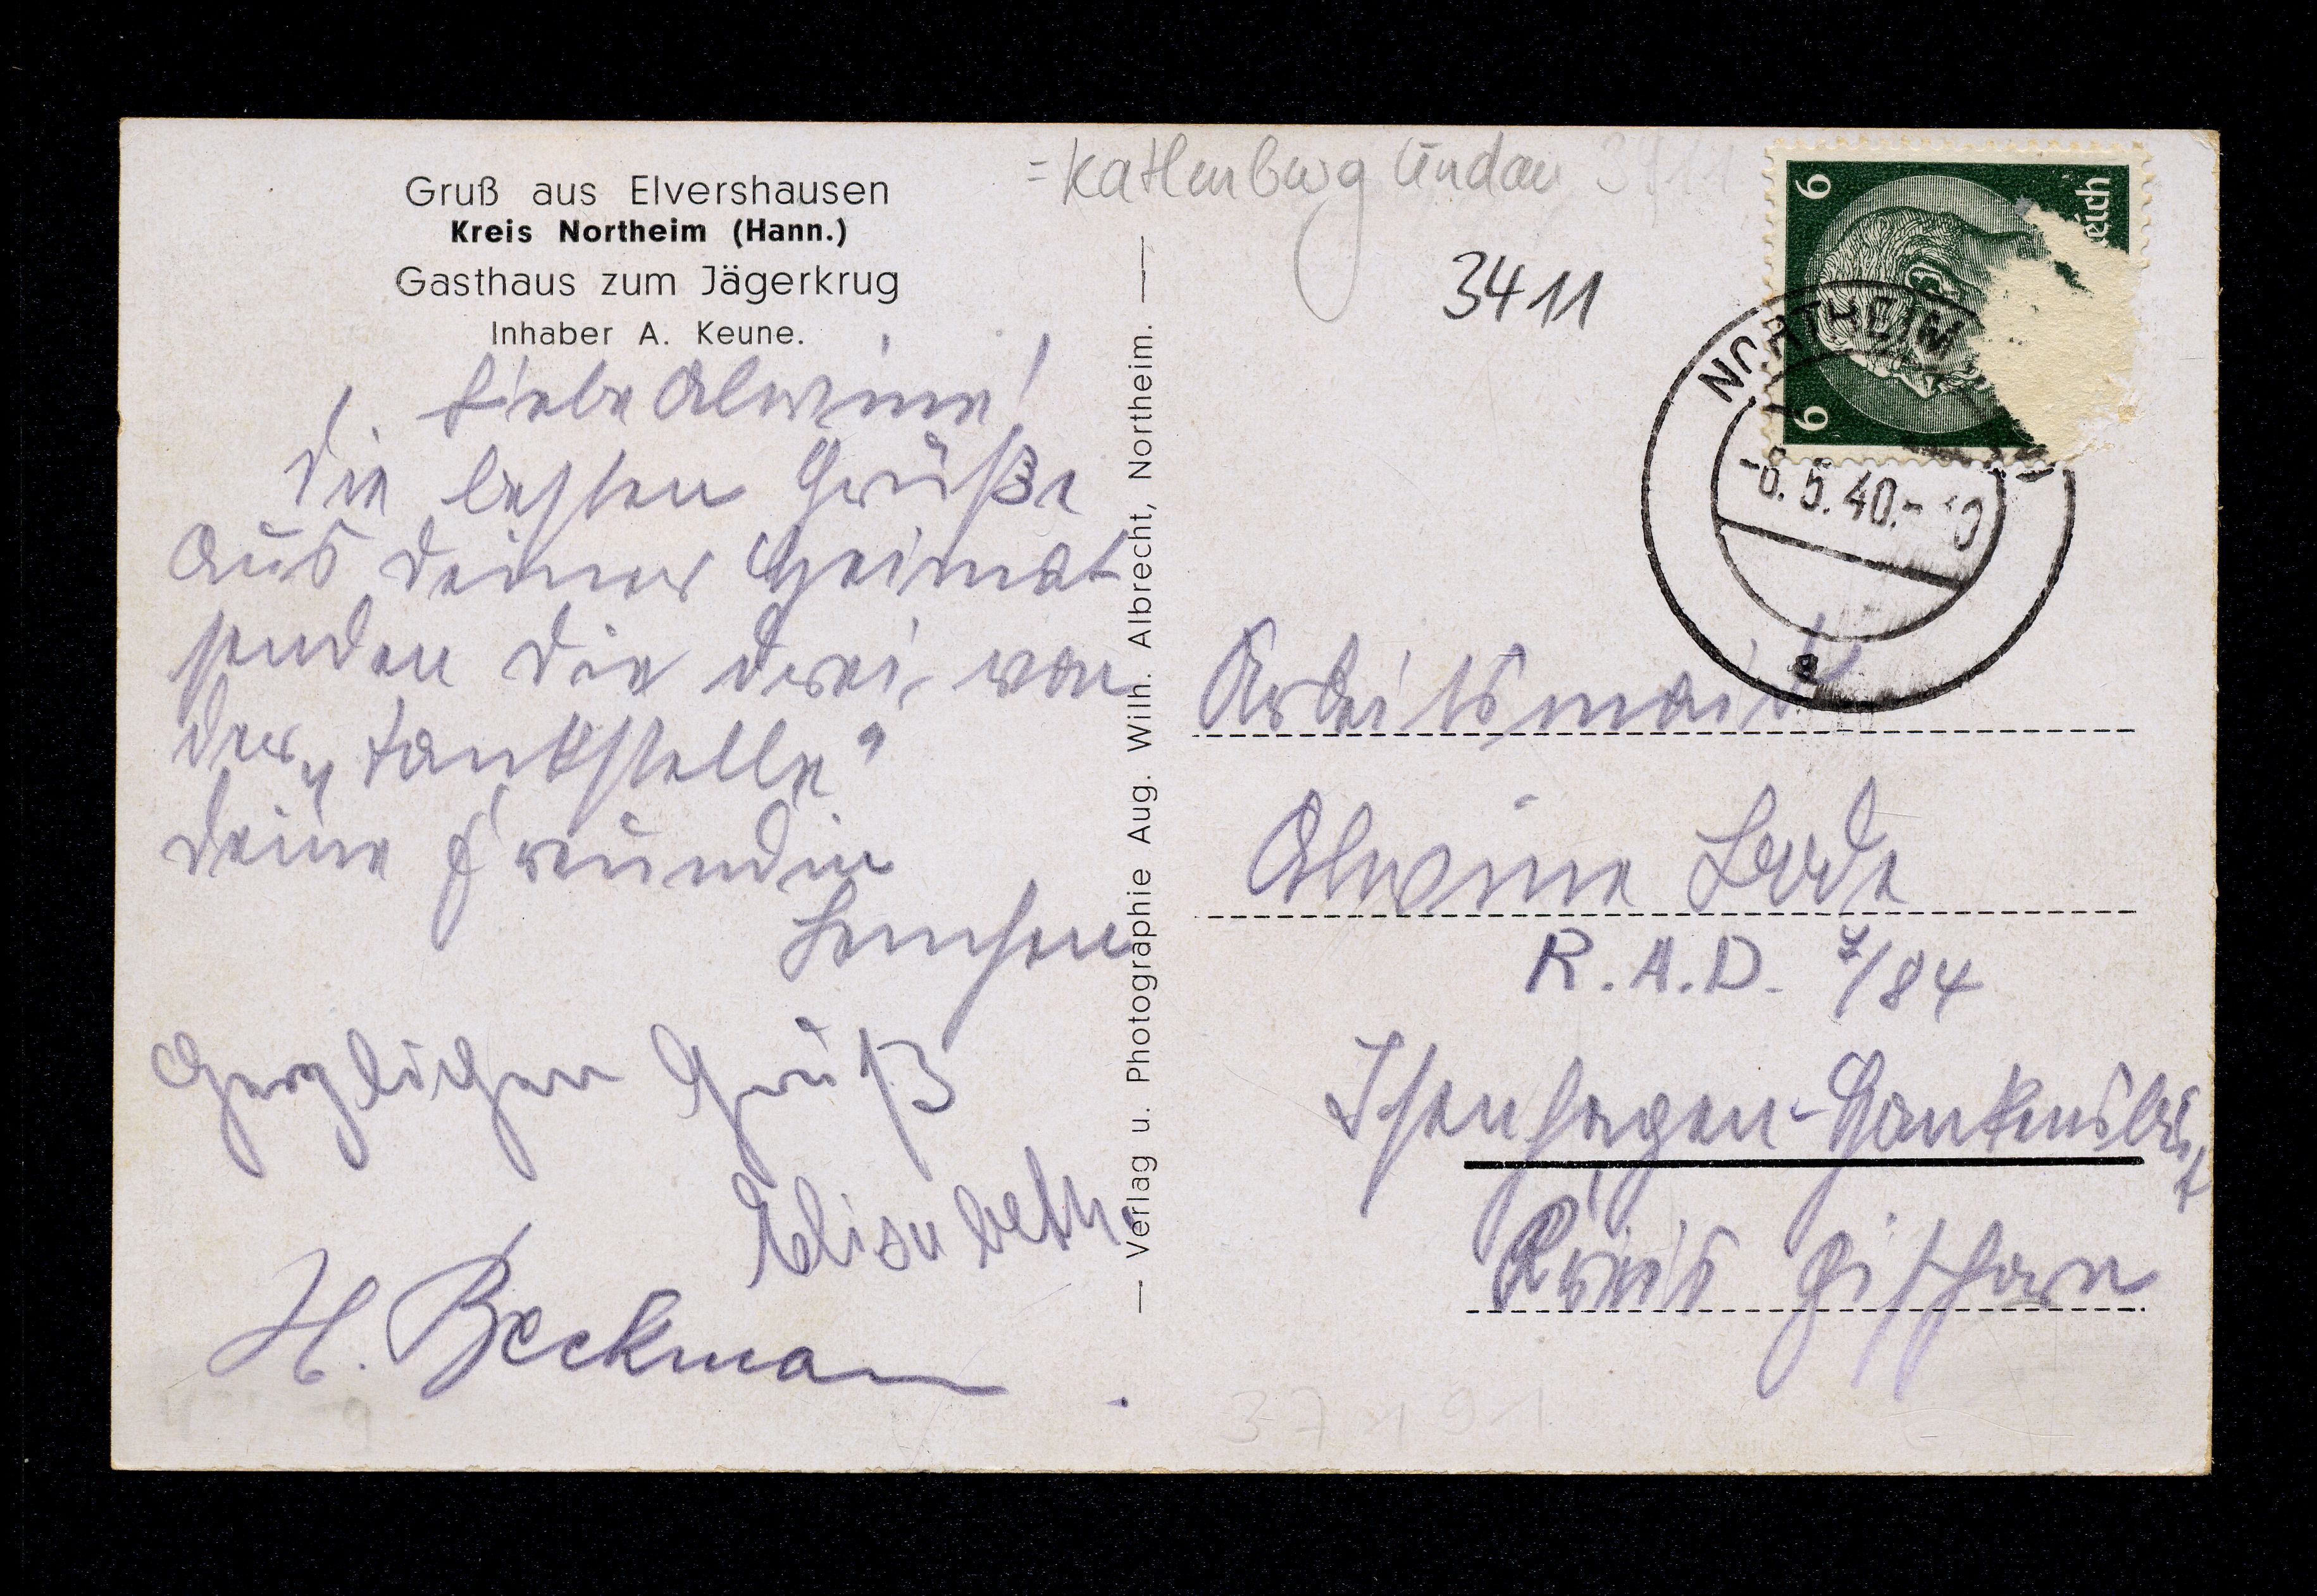 Gruß aus Elvershausen
Kreis Northeim (Hann.)
Gasthaus zum Jägerkrug
Inhaber A. Keune.
Liebe Alwine!
Die besten Grüße
aus deiner Heimat
senden die drei von
der „Tankstelle“
Deine Freundin
Lenchen
Herzlichen Gruß
Elisabeth.
H. Beckmann
— Verlag u. Photographie Aug. Wilh. Albrecht, Northeim. —
=Katlenburg Lindau 3411
3411
6
6
eich
NORTHEIM
5.40.-
a
Arbeitsmaid
Alwine
R.A.D. /84
Isenhagen-Hankensbüt
Kreis Gifhorn
37191